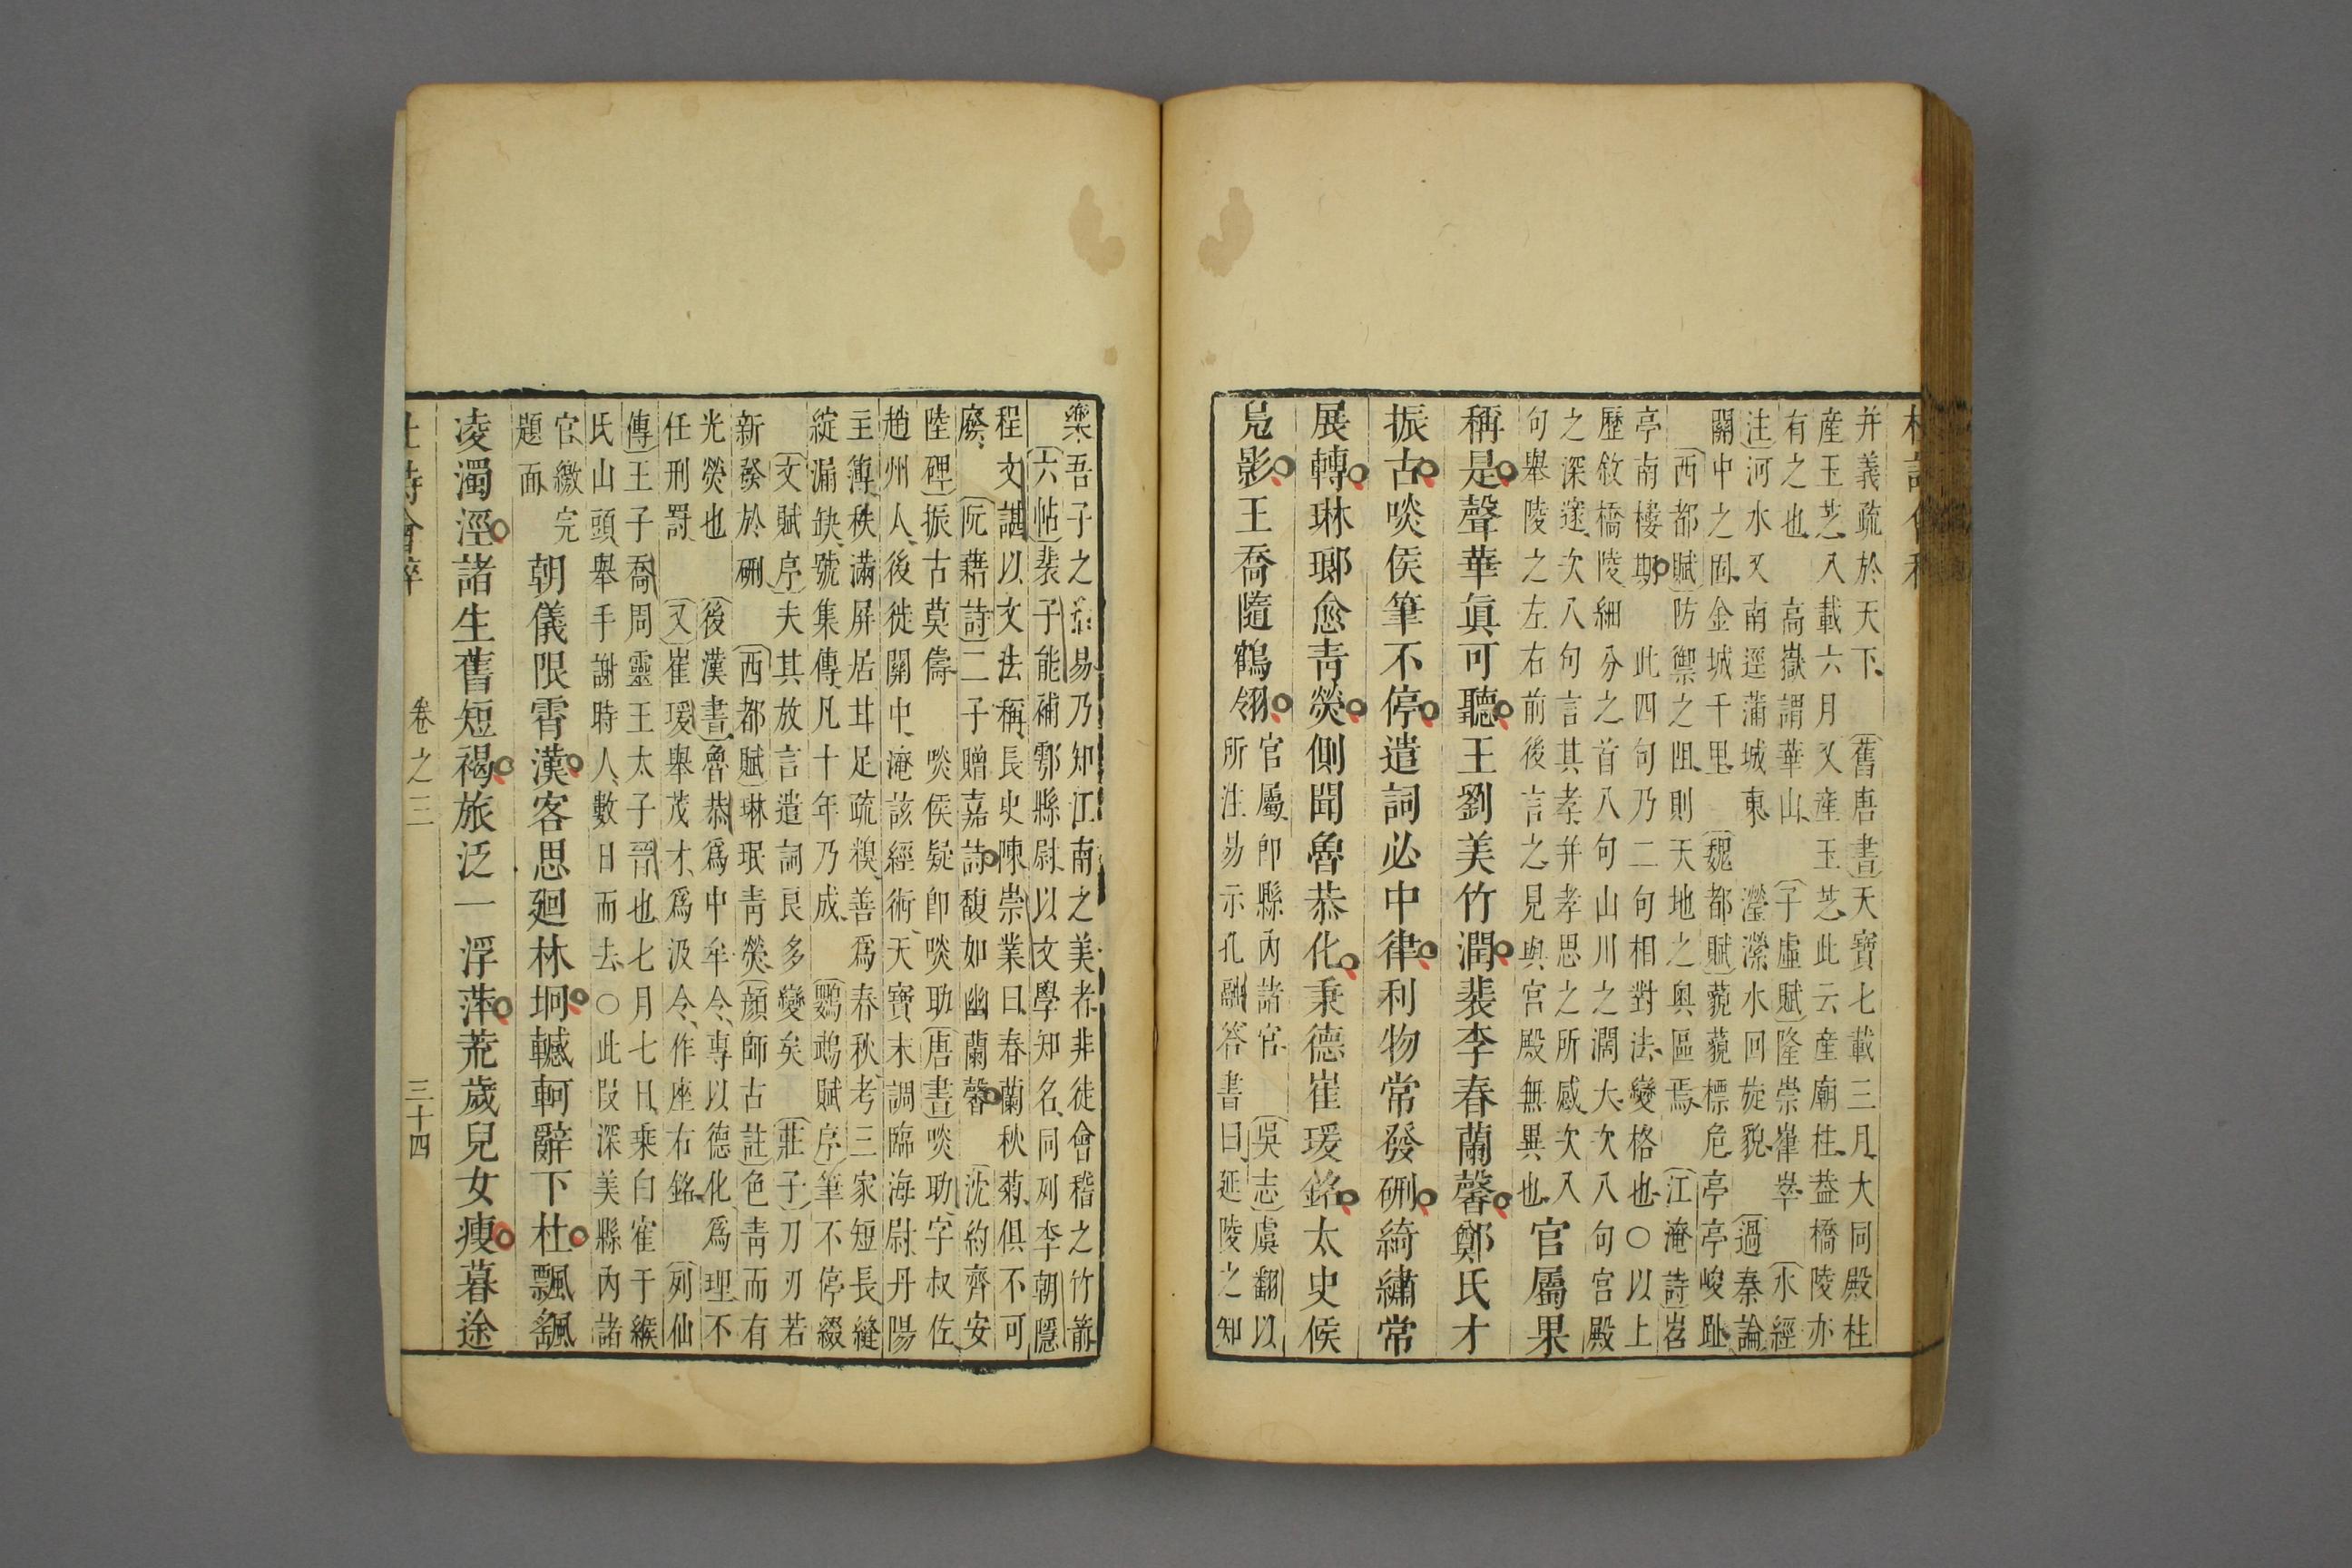 并義疏於天下舊唐書天寶七載三月大同殿柱
産玉芝八載六月又産玉芝此云産廟柱葢橋陵亦
有之也高嶽謂華山子虛賦隆崇嵂崒水經
注河水又南逕蒲城東瀅濴水回旋貌過秦論
關中之固金城千里魏都賦藐藐標危亭亭峻趾
西都賦防禦之阻則天地之奧區焉江淹詩岧
亭南樓期此四句乃二句相對法變格也○以上
歷敘橋陵細分之首八句山川之濶大次八句宮殿
之深邃次八句言其孝并孝思之所感次入
句舉陵之左右前後言之見與宮殿無異也
官屬果
稱是聲華眞可聽王劉美竹潤裴李春蘭馨鄭氏才
振古啖侯筆不停遣詞必中律利物常發硎綺繡常
展轉琳瑯愈青熒側聞魯恭化秉德崔瑗銘太史候
鳧影王喬隨鶴翎
官屬卽縣內諸官吳志虞翻以
所注易示孔融答書曰延陵之知
樂吾子之易乃知江南之美者非徒會稽之竹箭
六帖裴子能補鄠縣尉以文學知名同列李朝隱
程文諶以文法稱長史陳崇業曰春蘭秋菊俱不可
廢阮藉詩二子贈嘉詩馥如幽蘭馨沈約齊安
陸碑振古莫儔啖侯疑卽啖助唐書啖助字叔佐
趙州人後徙關中淹該經術天寶末調臨海尉丹陽
主簿秩滿屏居甘足疏糗善爲春秋考三家短長縫
綻漏缺號集傳凡十年乃成鸚鵡賦序筆不停綴
文賦序夫其放言遣詞良多變矣莊子刀刃若
新發於硎西都賦琳珉青熒顏師古註色青而有
光熒也後漢書魯恭爲中牟令專以德化爲理不
任刑罰又崔瑗舉茂才爲汲令作座右銘列仙
傳王子喬周靈王太子晉也七月七日乘白寉于緱
氏山頭舉手謝時人數日而去○此叚深美縣內諸
官繳完
題面
朝儀限霄漢客思廻林坰轗軻辭下杜飄颻
凌濁涇諸生舊短褐旅泛一浮萍荒歲兒女瘦暮途
卷之三
三十四